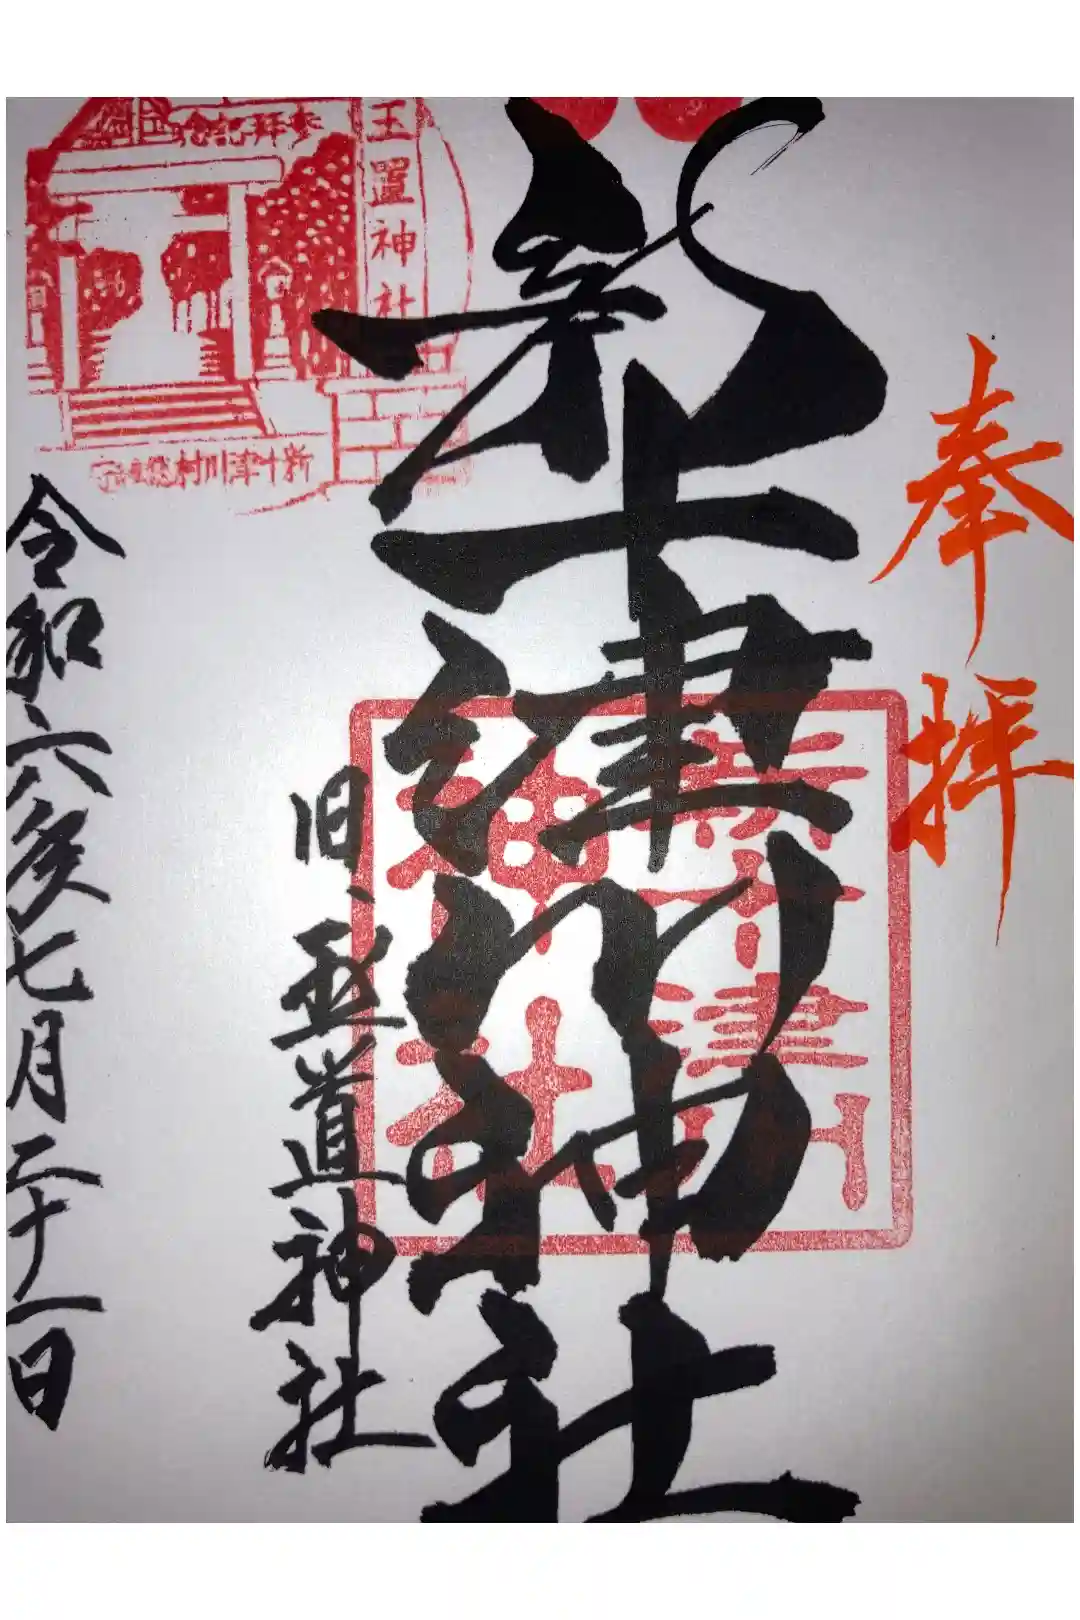 奉拝
新十津川神社
新十津川
神社
旧、玉置神社
玉置神社
参拝記念
新十津川村総鎮守
令和六年七月二十一日